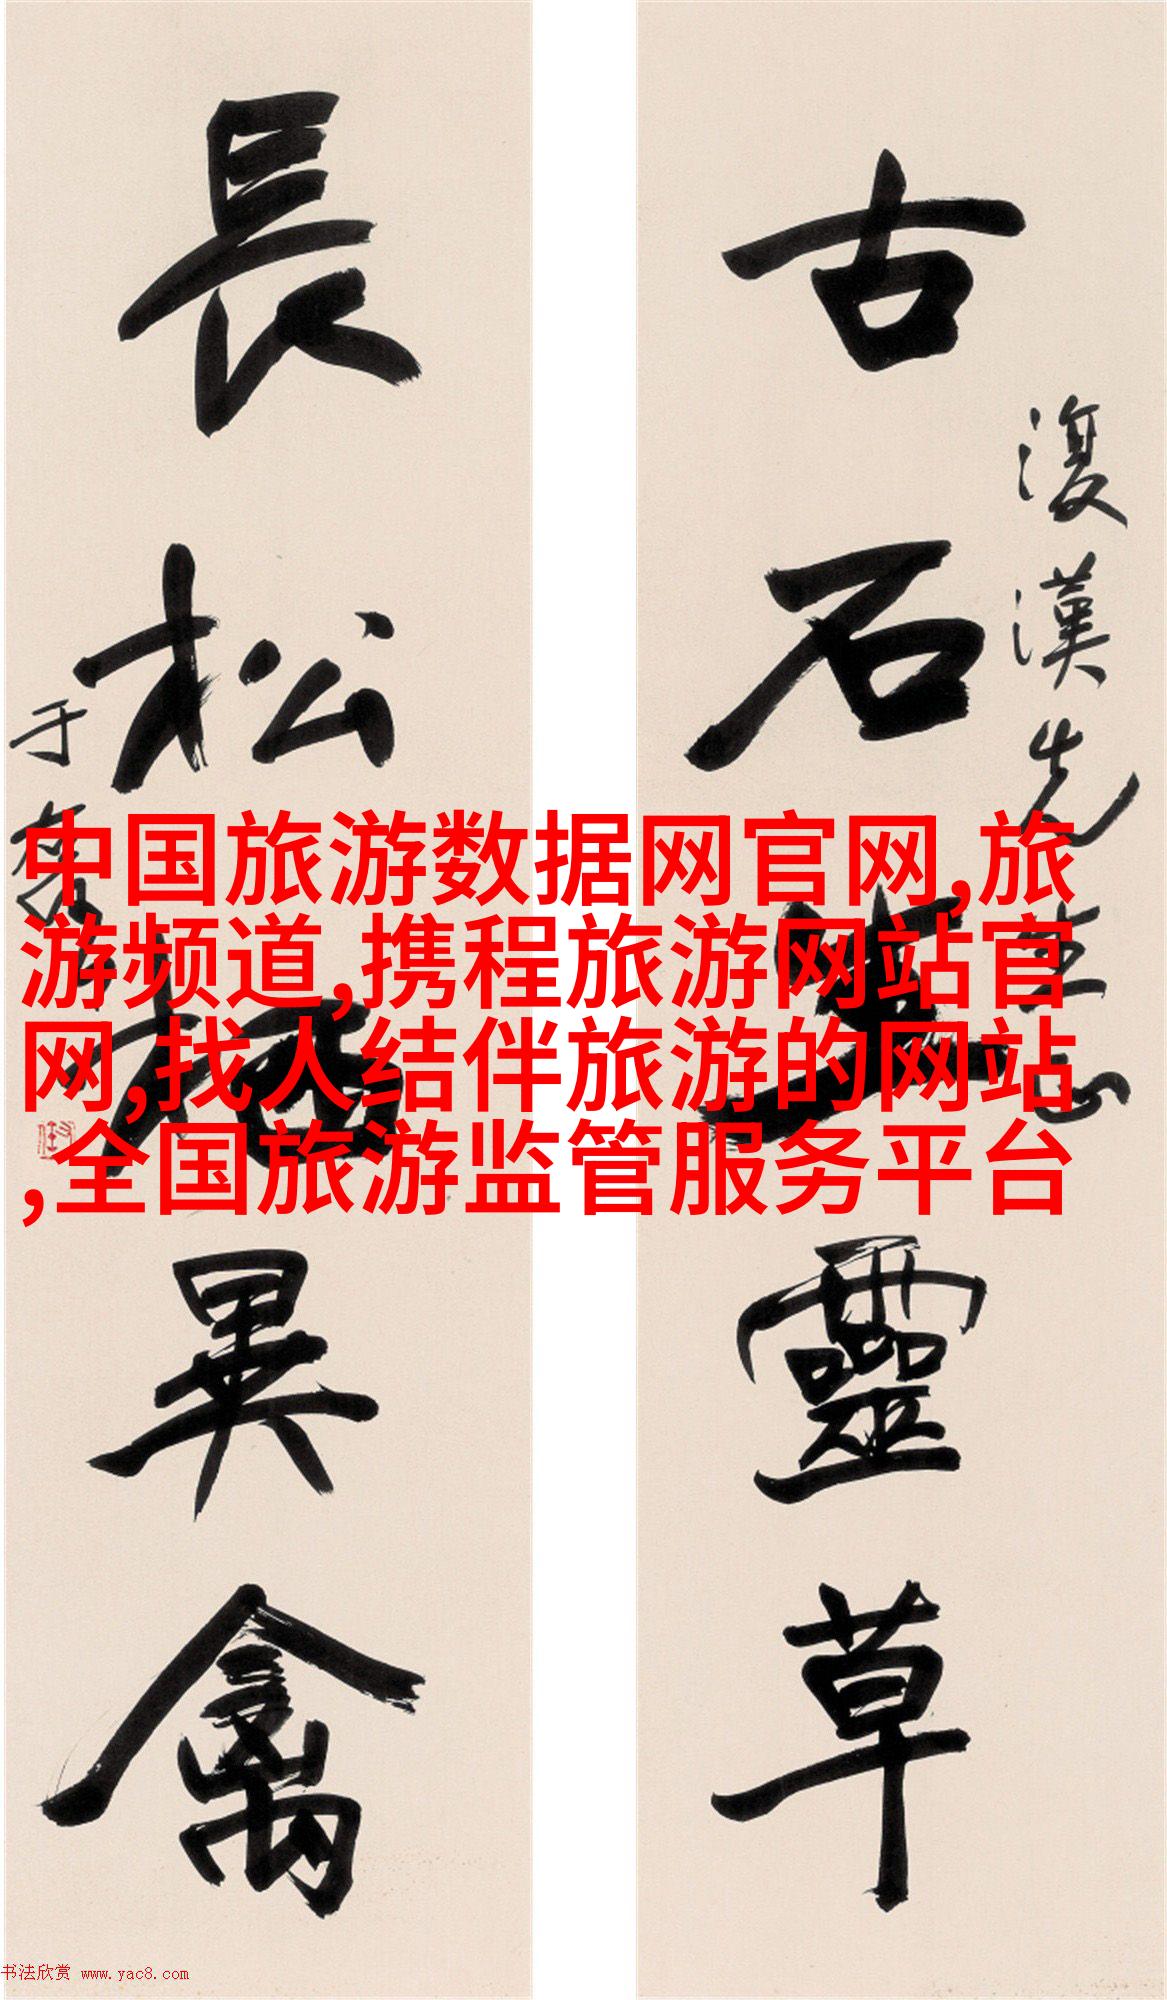 古石生靈草
復漢先生正
長松栖異禽
于右任
中国旅游数据网官网,旅
游频道,携程旅游网站官
网,找人结伴旅游的网站
,全国旅游监管服务平台
书法欣赏 www.yac8.com